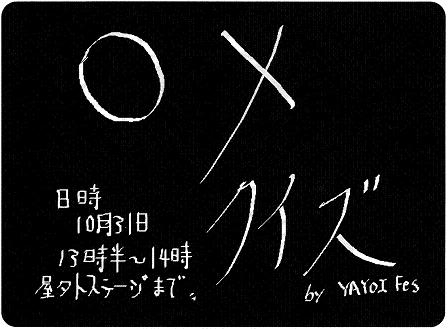 ○×
クイズ
日時
10月31日
13時半～14時
屋外ステージまで。
by YAYOI Fes